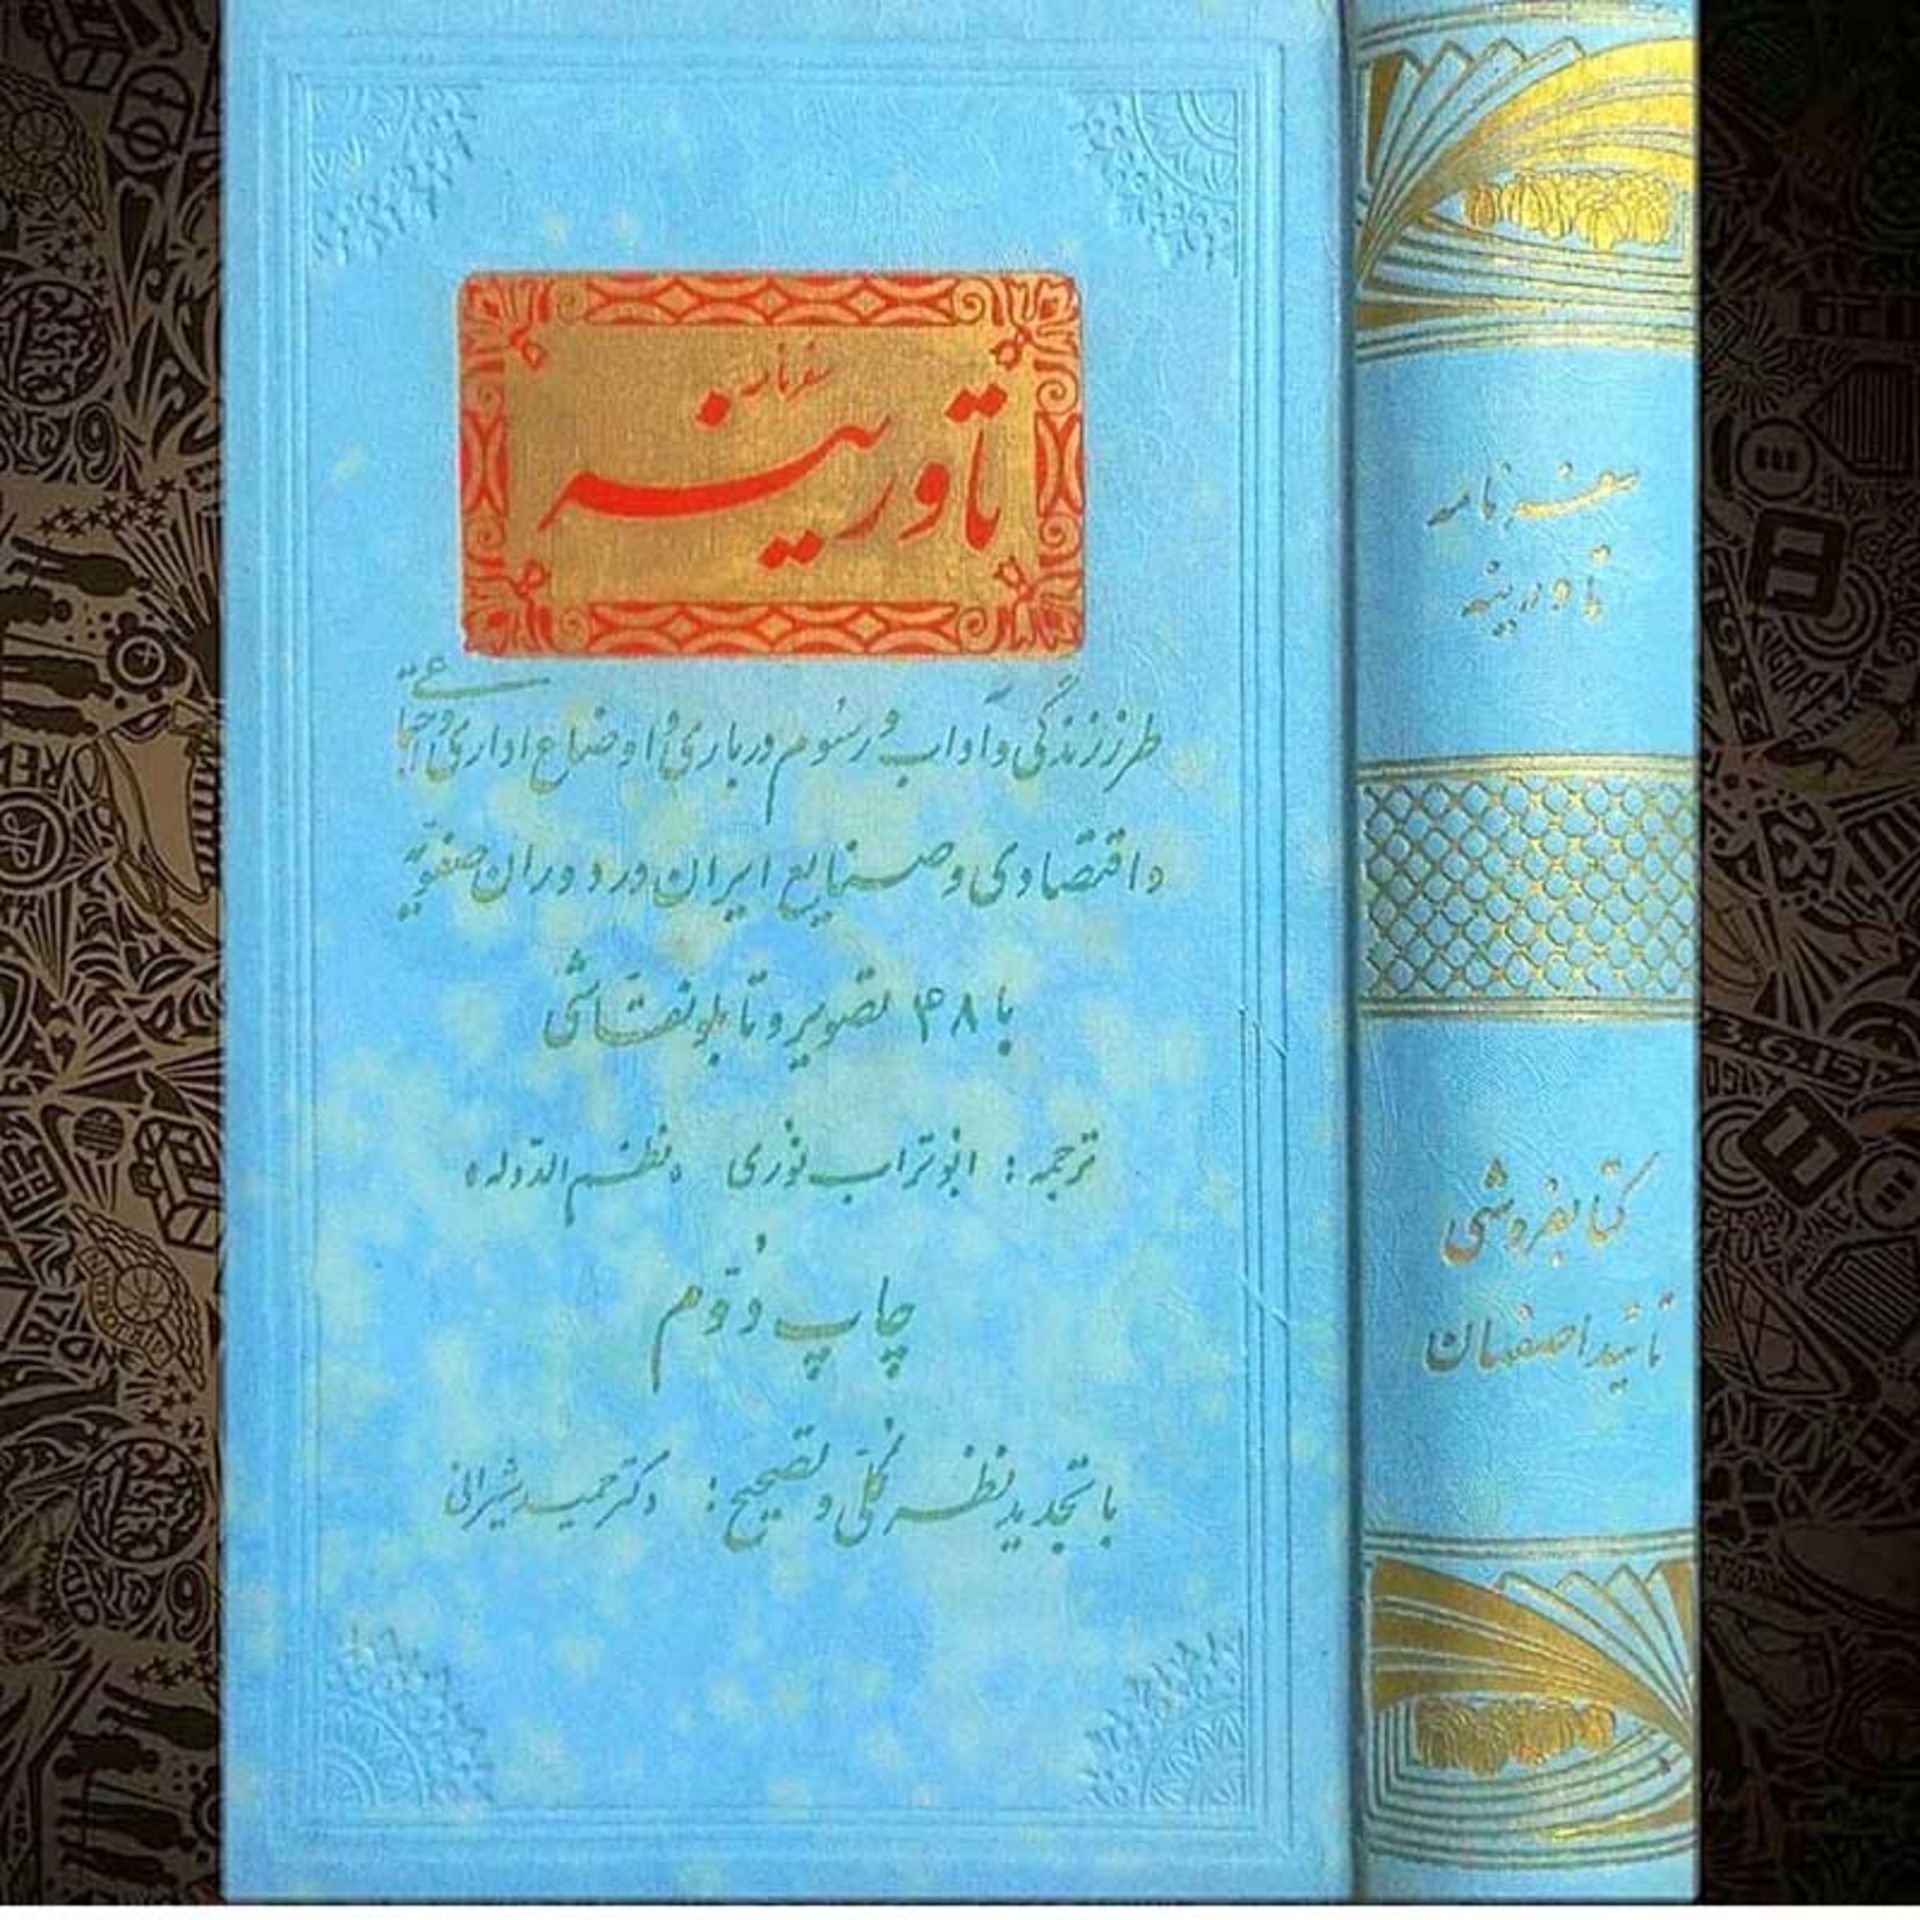 سفرنامه
تاورنیه
طرز زندگی و آداب و رسوم درباری و اوضاع اداری و اجتماعی
و اقتصادی و صنایع ایران در دوران صفویّه
با ۴۸ تصویر و تابلو نقاشی
ترجمه : ابوتراب نوری «نظم الدّوله»
چاپ دوّم
با تجدید نظر کلّی و تصحیح : دکتر حمید شیرانی
سفرنامه
تاورنیه
کتابفروشی
تأئید اصفهان